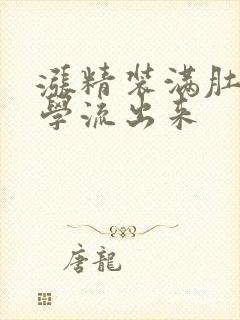 漲精装满肚
學流出来
唐龍